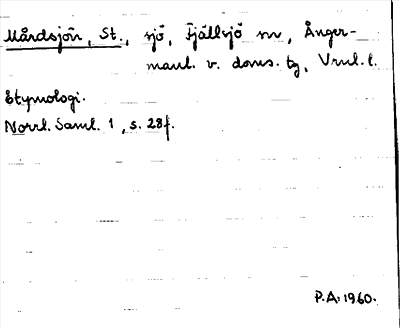 Mårdsjön, St., sjö, Fjällsjö sn, Ånger-
manl. v. doms. tg, Vnrl. l.
Etymologi.
Norrl. Saml. 1, s. 28f.
P.A. 1960.